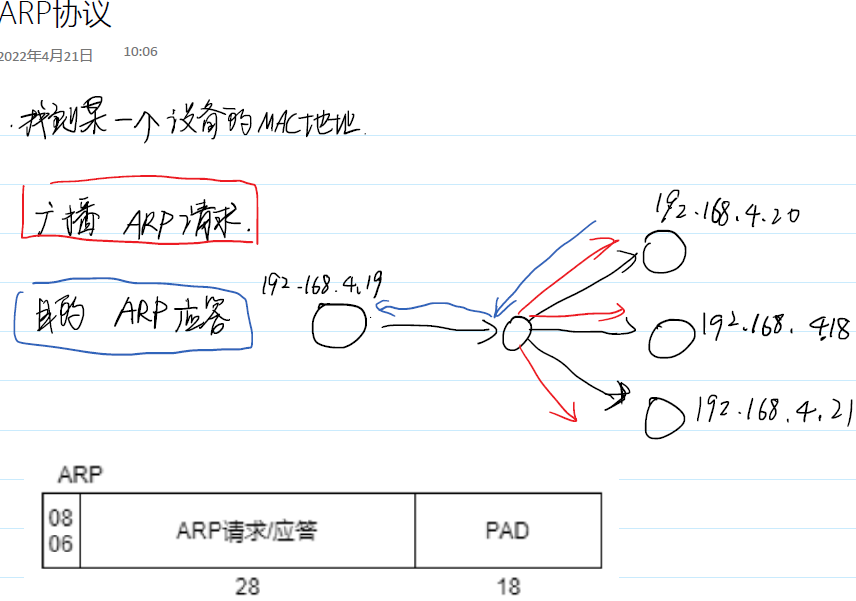 ARP协议
2022年4月21日 10:06
·找到某一个设备的MAC地址.
广播 ARP请求.
目的 ARP应答
192.168.4.19
192.168.4.20
192.168.4.18
192.168.4.21
ARP
08
06
ARP请求/应答
PAD
28
18